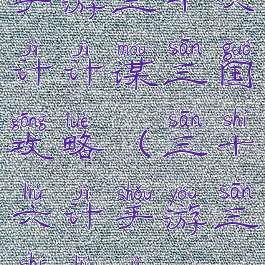 jì jì móu sān guó
计计谋三国
gōng lüè sān shí
攻略（三十
liù jì shǒu yóu sān
六计手游三